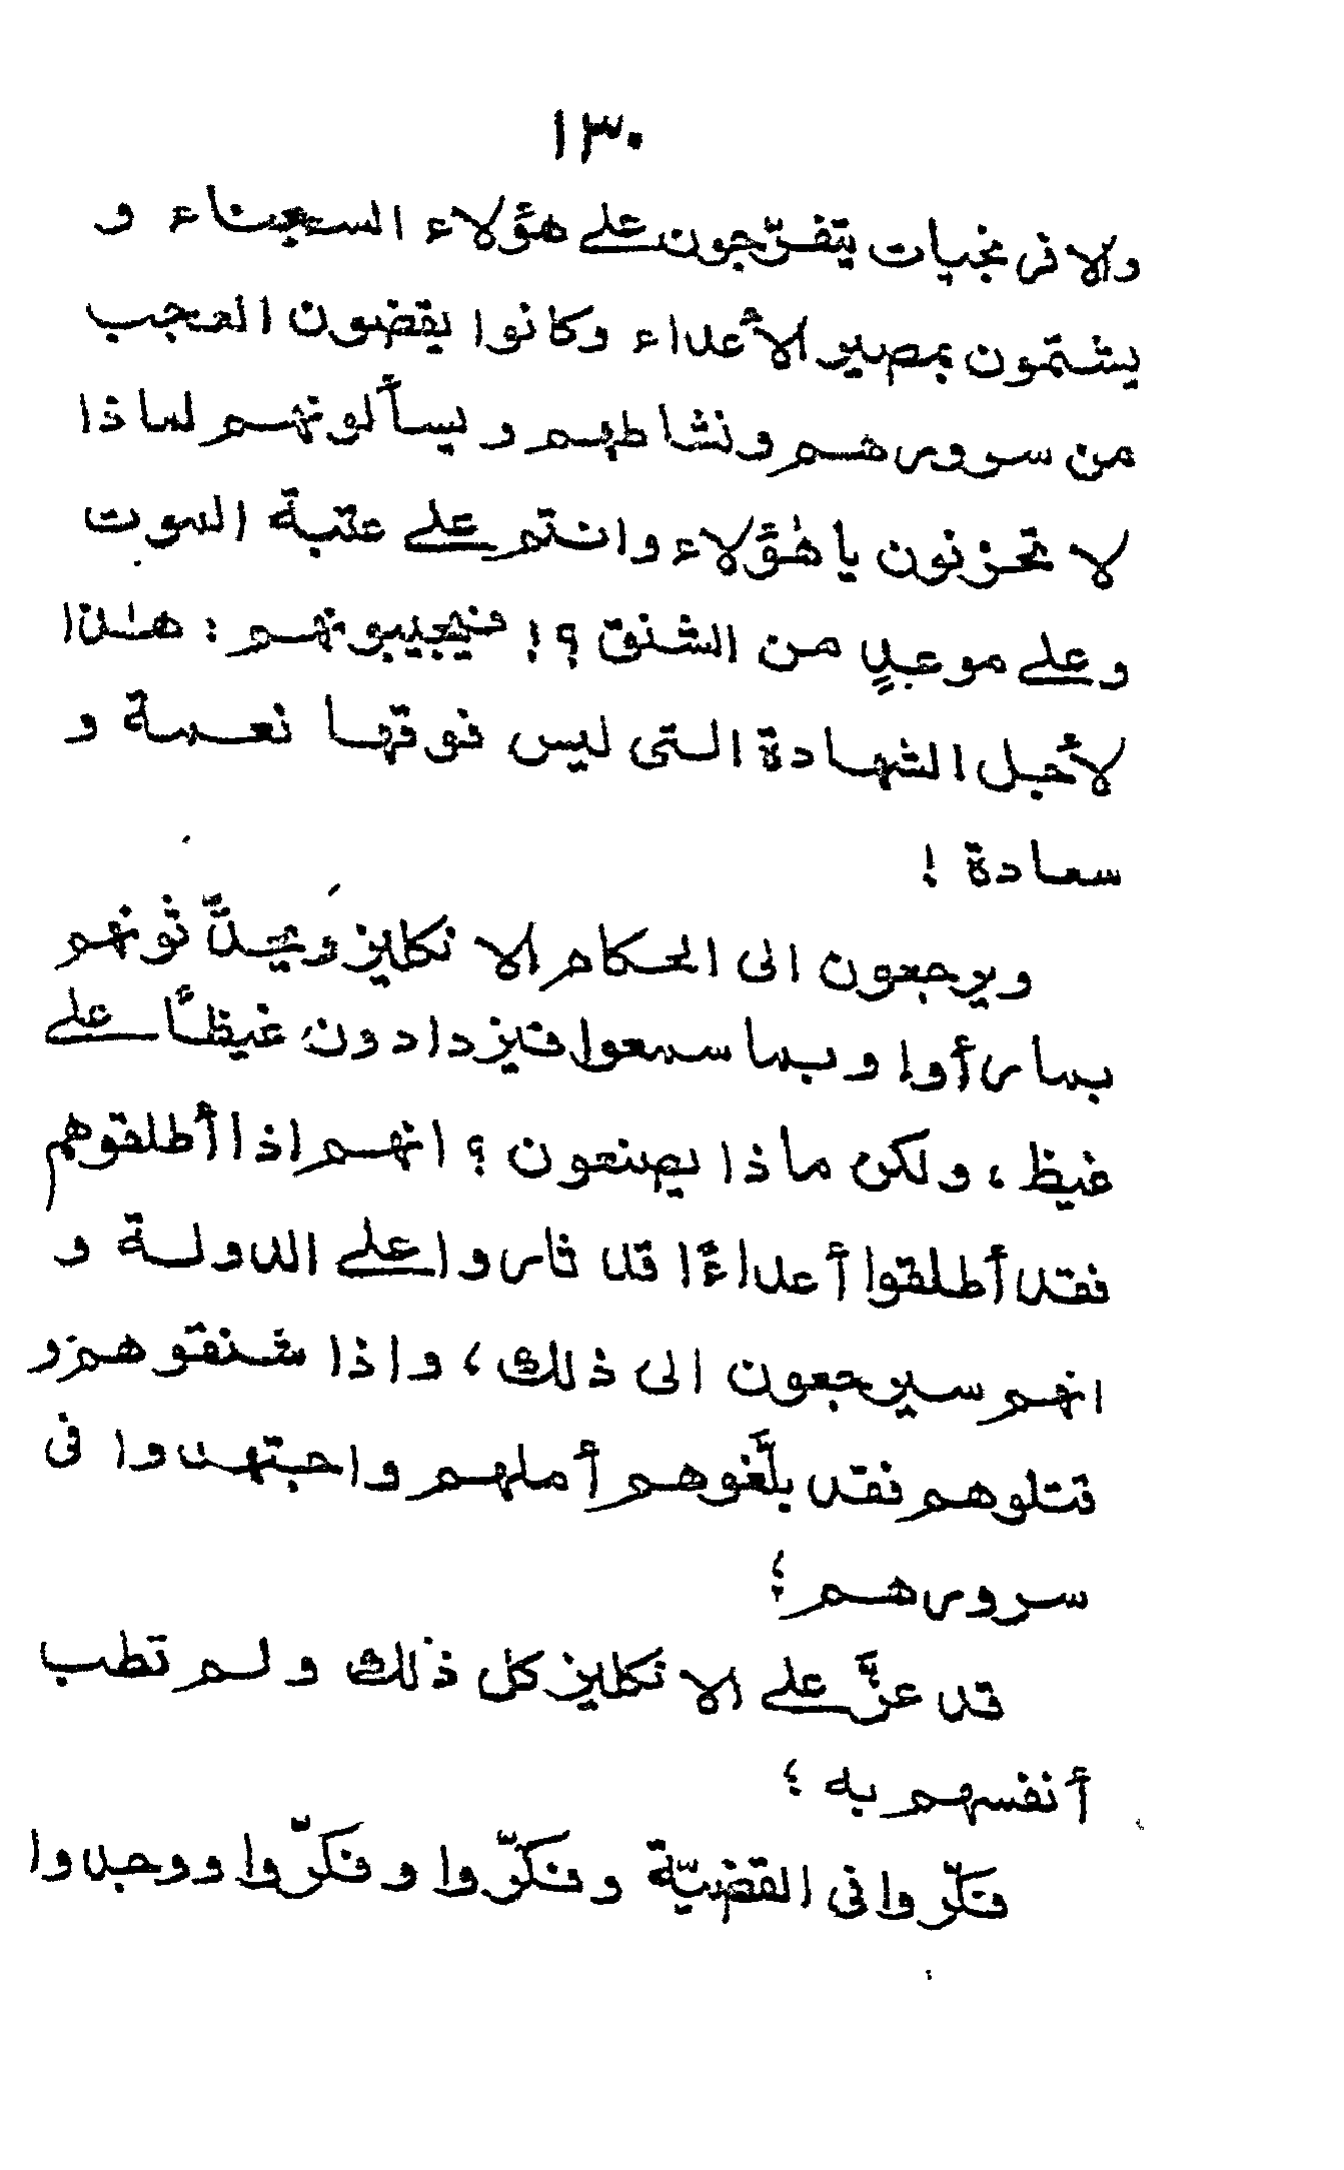 ١٣٠
والافرنجيات يتفرّجون على هؤلاء السجناء و
يشتمون بمصير الأعداء وكانوا يقضون العجب
من سرورهم ونشاطهم ويسألونهم لماذا
لا تحزنون يا هٰؤلاء وانتم على عتبة الموت
وعلى موعدٍ من الشنق ؟! فيجيبونهم : هٰذا
لأجل الشهادة التى ليس فوقها نعمة و
سعادة !
ويرجعون الى الحكام الانكليز ويحدّثونهم
بما رأوا وبما سمعوا فيزدادون غيظاً على
غيظ ، ولكن ماذا يصنعون ؟ انهم اذا أطلقوهم
فقد أطلقوا أعداءًا قد ثاروا على الدولة و
انهم سيرجعون الى ذلك ، واذا شنقوهم و
قتلوهم فقد بلّغوهم أملهم واجتهدوا فى
سرورهم ؛
قد عزَّ على الانكليز كل ذلك ولم تطب
أنفسهم به ؛
فكّروا فى القضيّة وفكّروا وفكّروا ووجدوا